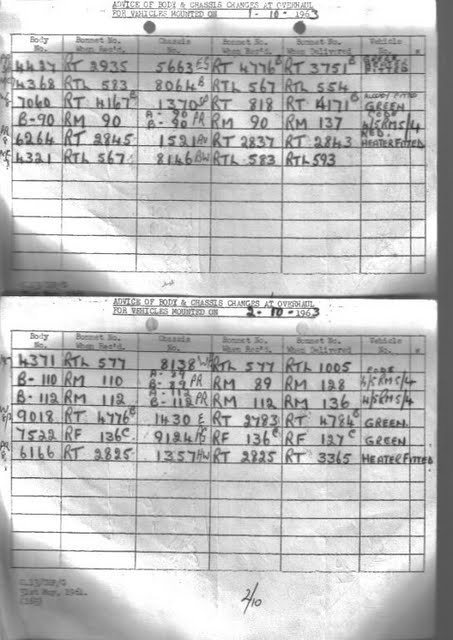 ADVICE OF BODY & CHASSIS CHANGES AT OVERHAUL
FOR VEHICLES MOUNTED ON 1-10-1963
Body No. Bonnet No. When Rec'd. Chassis No. Bonnet No. When Rec'd. Bonnet No. When Delivered Vehicle No.
4427 RT 2935 5663 ES RT 4776 B RT 3751 B
4368 RTL 583 8064 B RTL 567 RTL 554
7060 RT 4167 B 1370 RT 818 RT 4171 B GREEN
B-90 RM 90 A-90 B-90 PR RM 90 RM 137 CODE 4/5RM5/4
6264 RT 2845 1521 RT 2837 RT 2843 RED. HEATER FITTED
4321 RTL 567 8146 BW RTL 583 RTL 593
ADVICE OF BODY & CHASSIS CHANGES AT OVERHAUL
FOR VEHICLES MOUNTED ON 2-10-1963
Body No. Bonnet No. When Rec'd. Chassis No. Bonnet No. When Rec'd. Bonnet No. When Delivered Vehicle No.
4371 RTL 577 8138 RTL 577 RTL 1005
B-110 RM 110 A-89 B-89 PR RM 89 RM 128 CODE 4/5RM5/4
B-112 RM 112 A-112 B-112 PR RM 112 RM 136 4/5RM5/4
9018 RT 4776 B 1430 E RT 2783 RT 4784 B GREEN
7522 RF 136 C 9124 RF 136 C RF 127 C GREEN
6166 RT 2825 1357 HW RT 2825 RT 3365 HEATER FITTED
31st May, 1961.
2/10